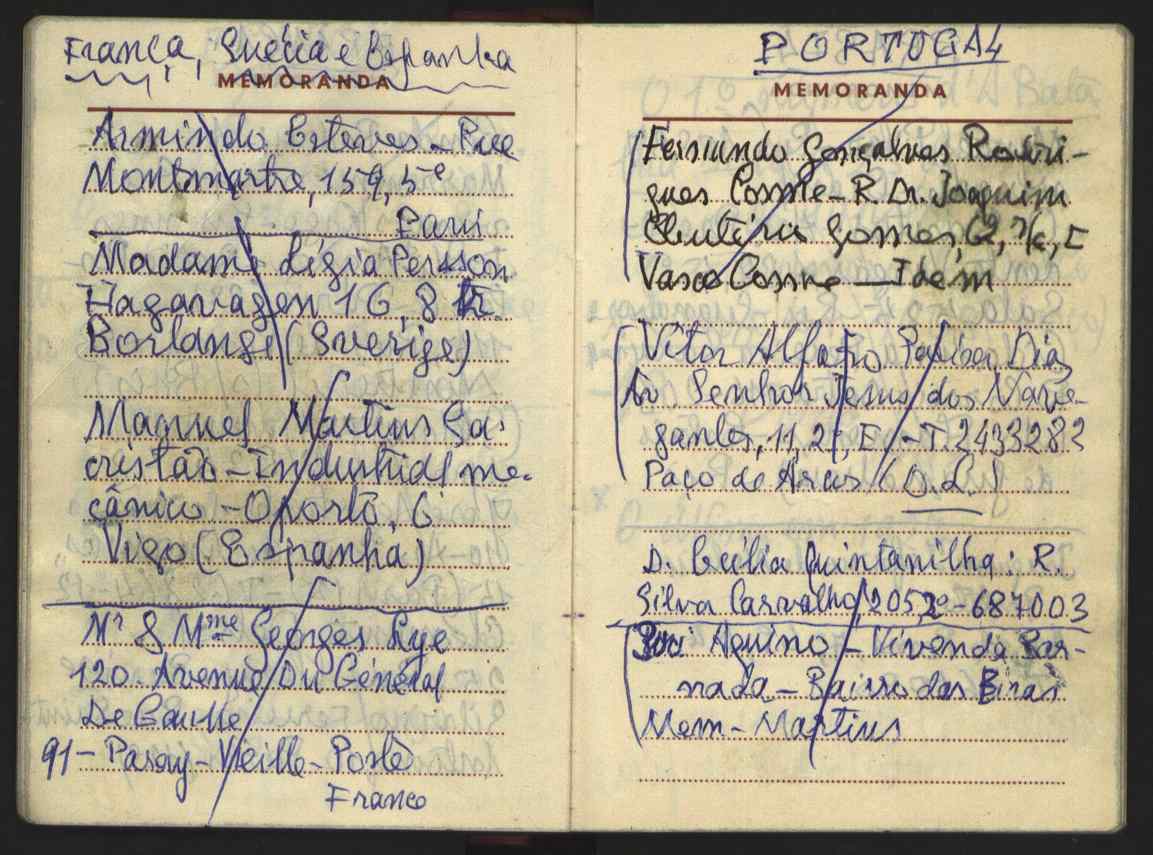 França, Suécia e Espanha
MEMORANDA
Armindo Esteves - Rue
Montmartre, 159, 5e
Paris
Madame Lígia Persson
Hagavagen 16, 8
Borlange (Sverige)
Manuel Martins Sa-
cristão - Industrial me-
cânico - Oporto, 6
Vigo (Espanha)
Mr & Mme Georges Lye
120 Avenue Du Général
De Gaulle
91 - Paray - Vieille - Poste
France
PORTUGAL
MEMORANDA
Fernando Gonçalves Rodri-
gues Cosme - R. Dr. Joaquim
Eleutério Gomes, 62, r/c, E
Vasco Cosme - Idem
Vítor Alfaro Dias
Av. Senhor Jesus dos Nave-
gantes, 11, 2º, E. - T. 2433283
Paço de Arcos (O.L.)
D. Cecília Quintanilha: R.
Silva Carvalho, 205, 2º - 687003
Aquino - Vivenda Bar-
nada - Bairro das Eiras
Mem - Martins